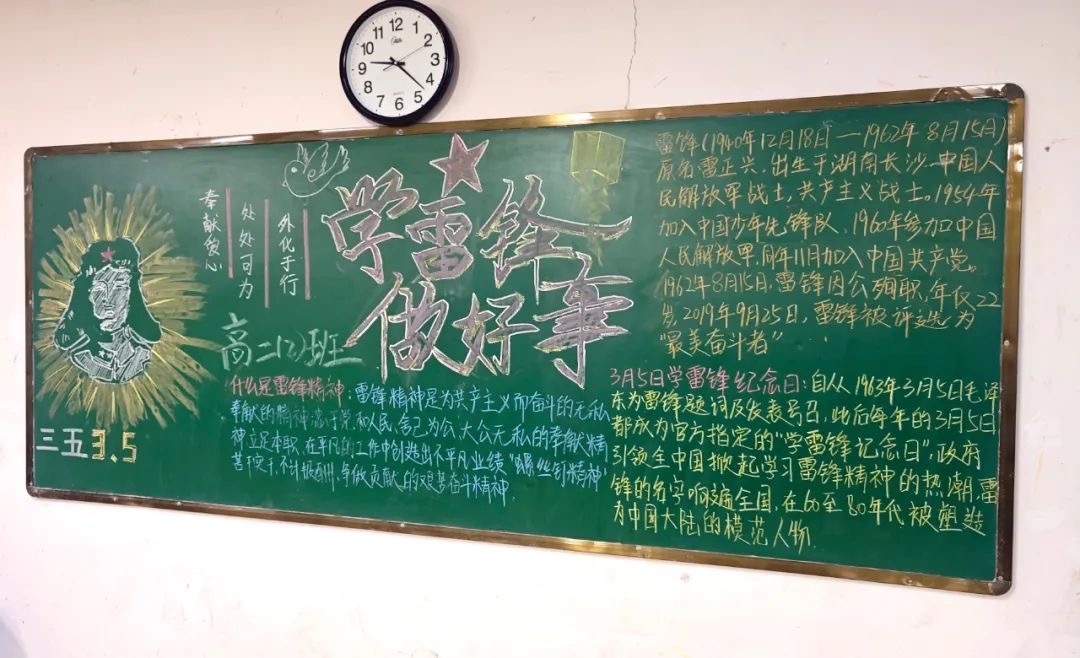 12
1
2
3
4
5
6
7
8
9
10
11
奉献爱心
处处可为
外化于行
学雷锋
做好事
高二(2)班
三五3.5
什么是雷锋精神:雷锋精神是为共产主义而奋斗的无私
奉献的精神;忠于党和人民、舍己为公、大公无私的奉献精
神;立足本职、在平凡的工作中创造出不平凡业绩"螺丝钉精神"
苦干实干、不计报酬、争做贡献的艰苦奋斗精神.
雷锋(1940年12月18日—1962年8月15日)
原名雷正兴,出生于湖南长沙,中国人
民解放军战士,共产主义战士。1954年
加入中国少年先锋队,1960年参加中国
人民解放军,同年11月加入中国共产党。
1962年8月15日,雷锋因公殉职,年仅22
岁,2019年9月25日,雷锋被评选为
"最美奋斗者"
3月5日学雷锋纪念日:自从1963年3月5日毛泽
东为雷锋题词及发表号召,此后每年的3月5日
都成为官方指定的"学雷锋记念日",政府
引领全中国掀起学习雷锋精神的热潮,雷
锋的名字响遍全国,在60至80年代被塑造
为中国大陆的模范人物.